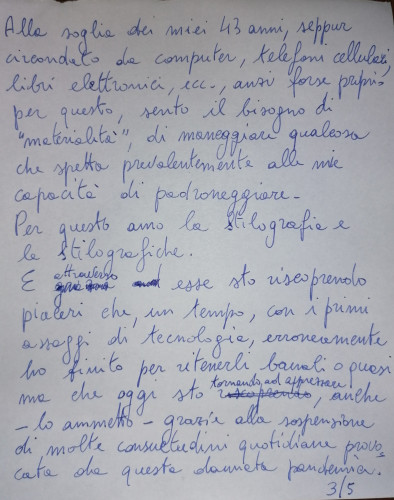 Alla soglia dei miei 43 anni, seppur
circondato da computer, telefoni cellulari,
libri elettronici, ecc., anzi forse proprio
per questo, sento il bisogno di
"materialità", di maneggiare qualcosa
che spetta prevalentemente alle mie
capacità di padroneggiare.
Per questo amo la stilografia e
le stilografiche.
E attraverso esse sto riscoprendo
piaceri che, un tempo, con i primi
assaggi di tecnologia, erroneamente
ho finito per ritenerli banali o quasi
ma che oggi sto tornando ad apprezzare, anche
- lo ammetto - grazie alla sospensione
di molte consuetudini quotidiane provo
cata da questa dannata pandemia.
3/5